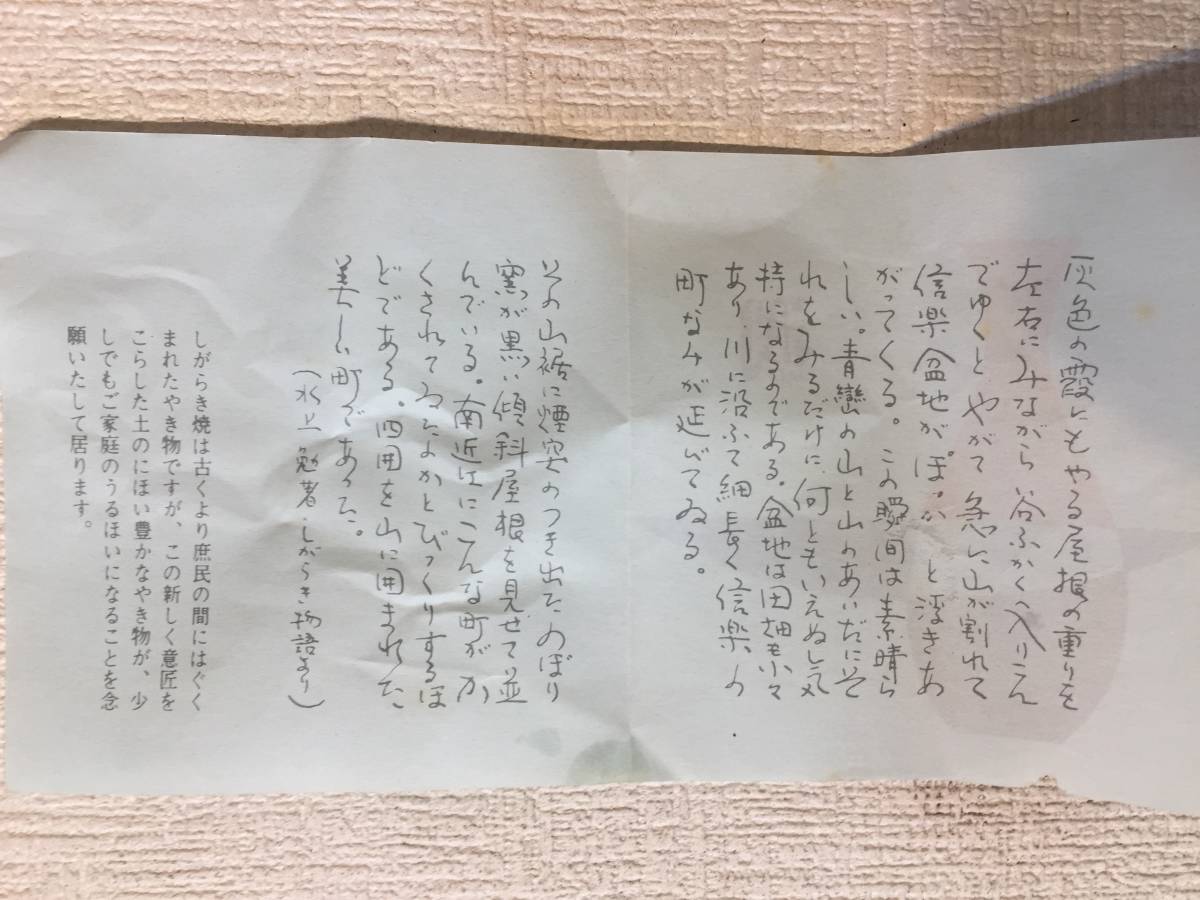 灰色の霞にもやる屋根の重りを
左右にみながら谷ふかく入りこん
でゆくとやがて急に山が割れて
信楽盆地がぽっかと浮きあ
がってくる。この瞬間は素晴ら
しい。青巒の山と山のあいだにそ
れをみるだけに、何ともいえぬ気
持になるのである。盆地は田畑も少々
あり、川に沿ふて細長く信楽の
町なみが延びてゐる。
その山裾に煙突のつき出たのぼり
窯が黒い傾斜屋根を見せて並
んでいる。南近江にこんな町が、か
くされてゐたよかとびっくりするほ
どである。四囲を山に囲まれた
美しい町であった。
(水上勉著・しがらき物語より)
しがらき焼は古くより庶民の間にはぐく
まれたやき物ですが、この新しく意匠を
こらした土のにほい豊かなやき物が、少
しでもご家庭のうるほいになることを念
願いたして居ります。